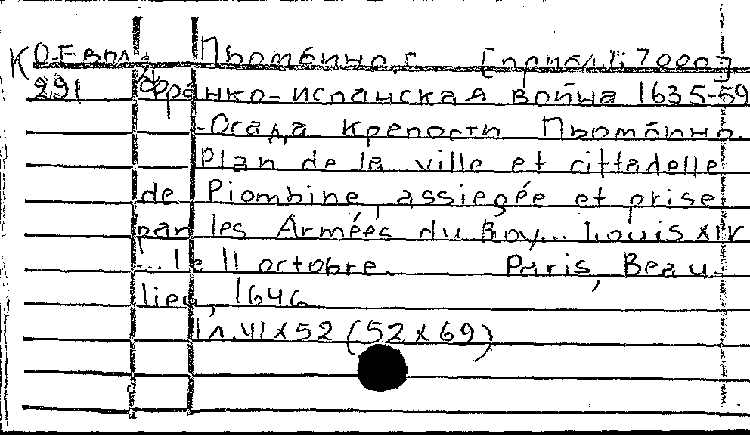 К 0Евп1/4 Пьомбино, г. [прибл. 1:7000]
291 Франко-испанская война 1635-59
-Осада крепости Пьомбино.
Plan de la ville et cittadelle
de Piombine, assiegée et prise
par les Armées du Roy... Louis XIV
... le 11 octobre. Paris, Beau-
lieu, 1646
1 л. 41 x 52 (52 x 69)